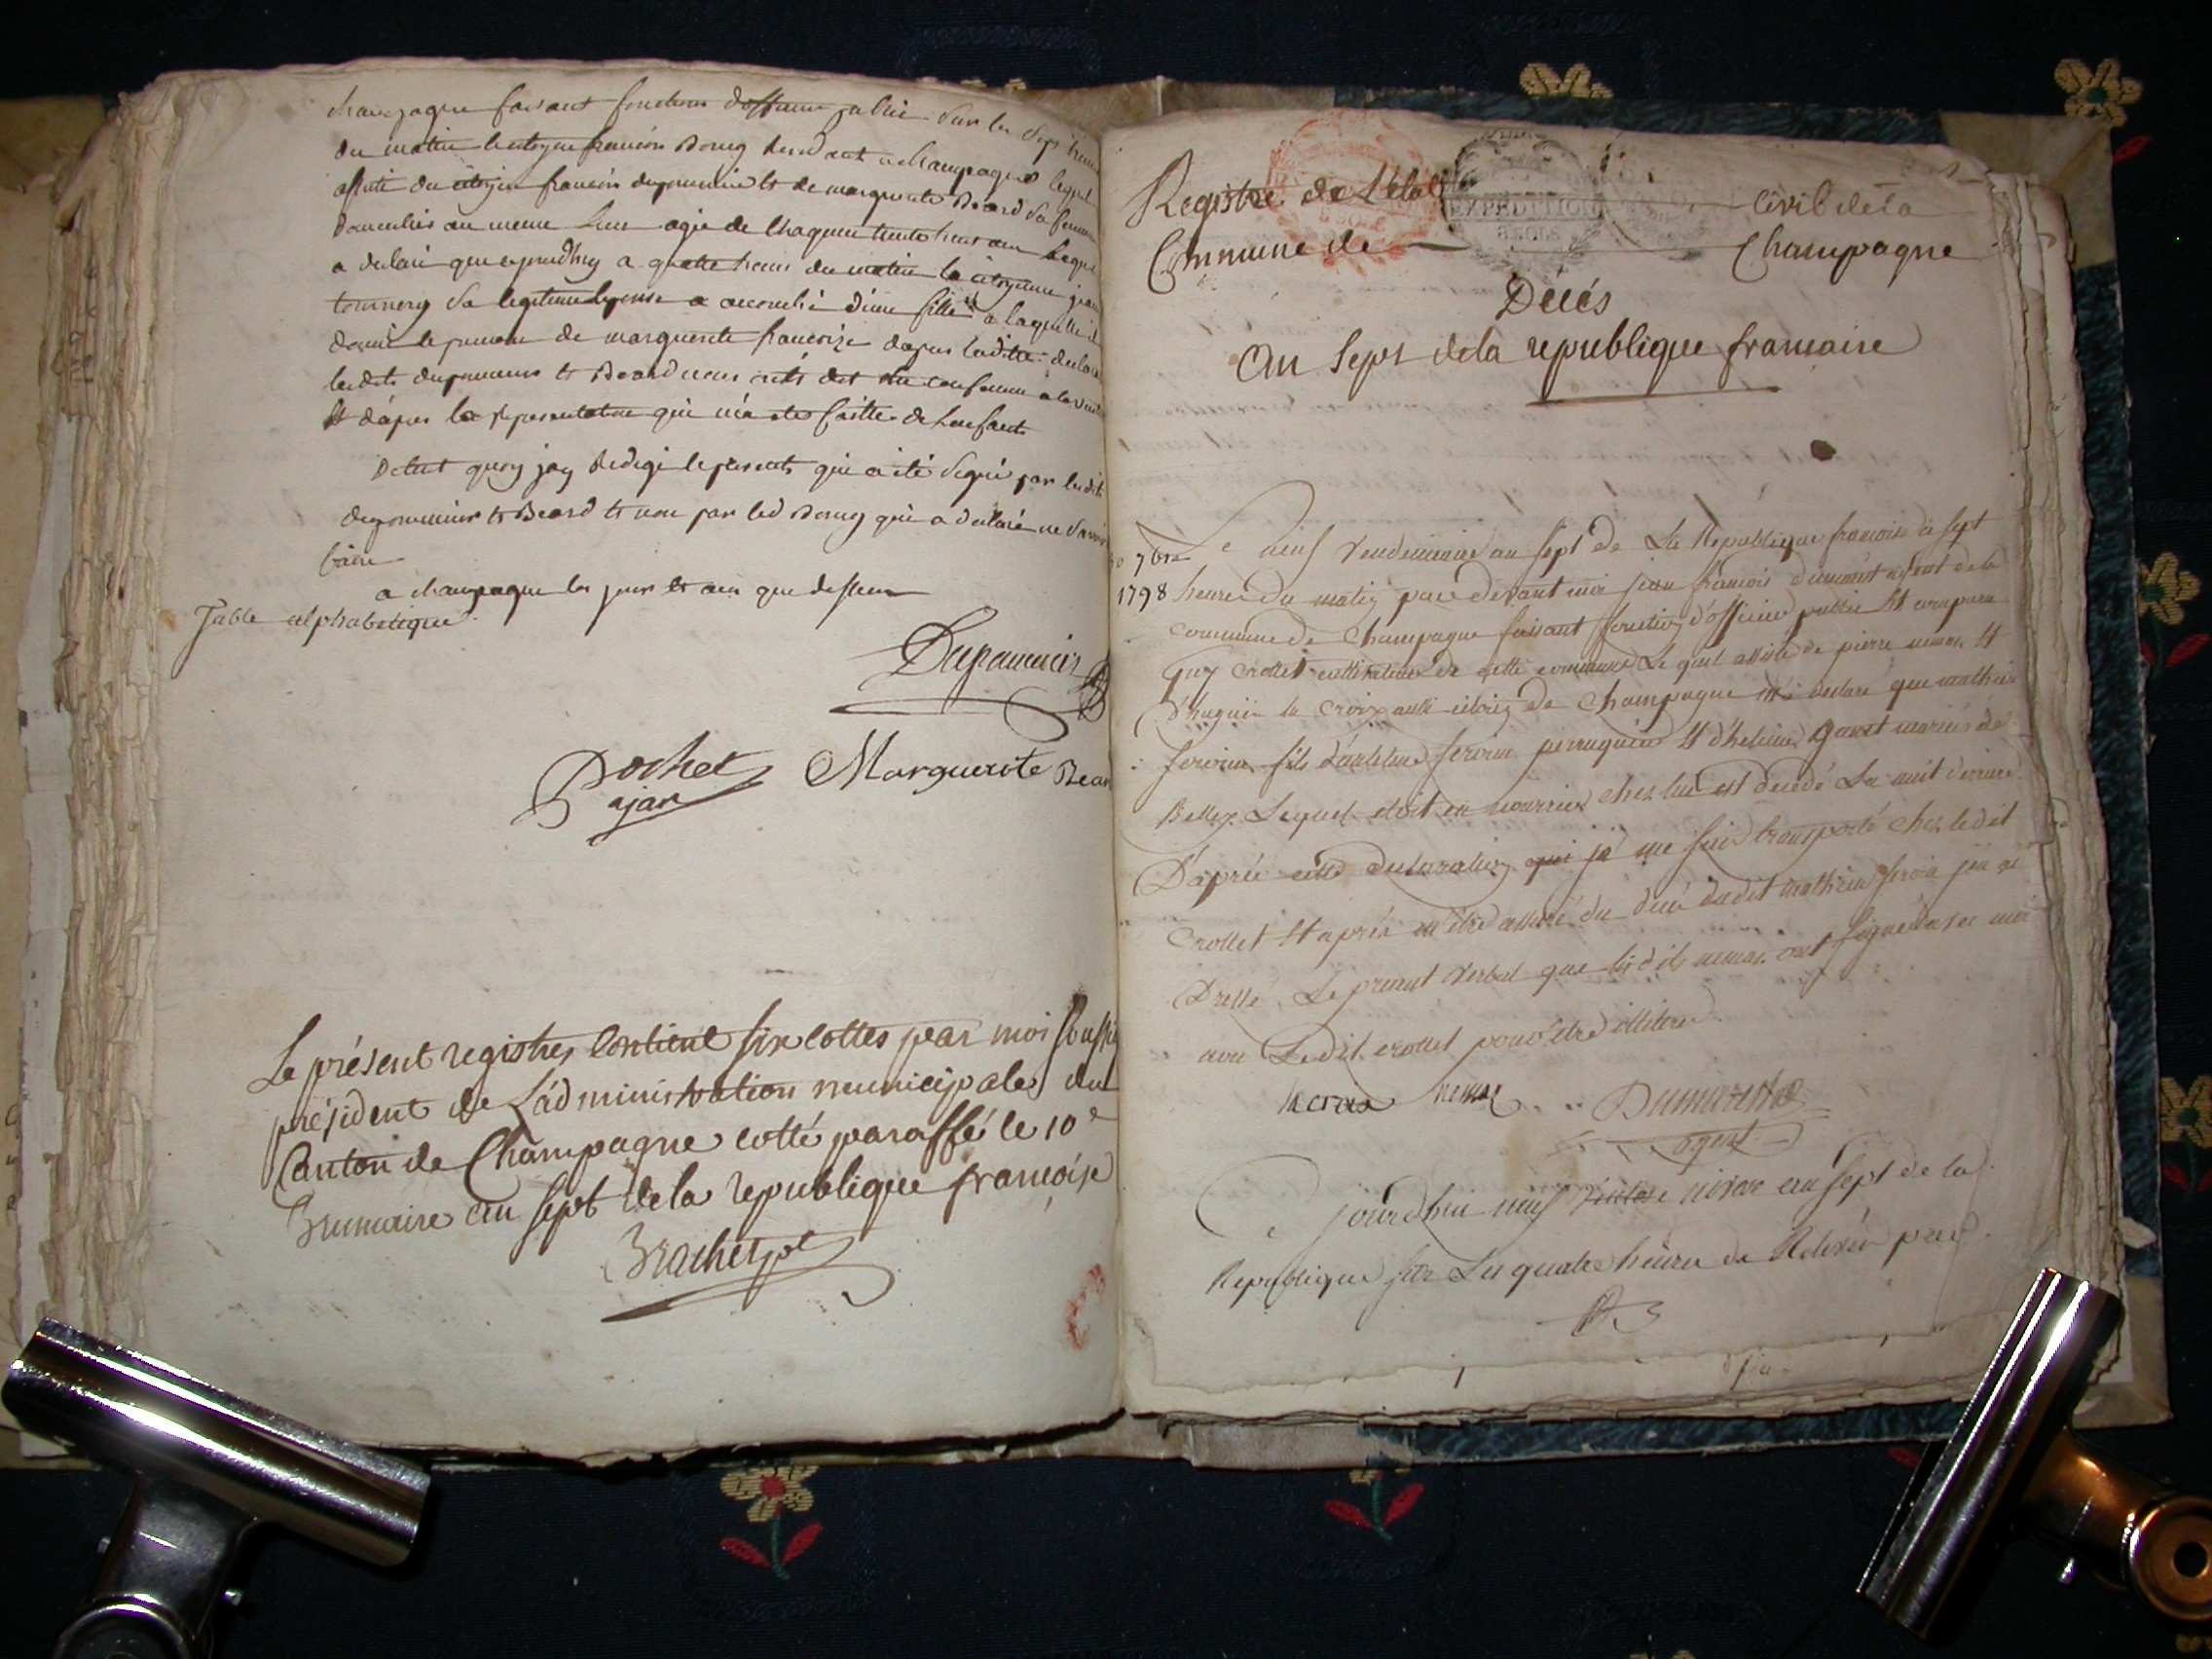 champagne faisant fonctions dofficier public sur les sept heures
du matin le citoyen francois Bourg residant a champagne lequel
assisté du citoyen francois duponnier et de marguerite Beard sa femme
domicilies au meme lieu agés de chaqun trente huit ans lequel
a declaré que aprudhuy a quatre heures du matin la citoyenne
tournery sa legitime epouse a accouché d'une fille a laquelle il
donné le prenom de marguerite francoise dapres ladite
lesdits et Beard nous ont dit conforme a la
et dápres la representation qui m'a eté faitte de lenfant
De tout quoy jay redigé le presents qui a été signé par lesdits
et Beard et non par led Bourg qui a declaré ne savoir
faire
a champagne les jour et an que dessus
Table alphabetique
Marguerite Bear
Pochet
ajan
Le présent registres contient six cottes par moi
président de L'administration municipale du
Canton de Champagne cotté paraffé le 10e
Brumaire an sept de la republique francoise
Brachet pt
Registre de L'état civil de la
EXPEDITION
Commune de Champagne
Décés
an Sept de la republique francaise
7bre Le neuf vendemiaire an sept de La Republique francoise à sept
1798 heures du matin par devant moi jean francois dumarest agent de la
commune de Champagne faisant fonction d'officier public Et comparu
Guy Crollet cultivateur de cette commune Le quel assisté de pierre Et
d'huguin la croix aussi citoien de Champagne m'a declaré que mathieu
fils d'antelme perruquier Et d'helaine mariés de
Belley Lequel etoit en nourrice chez lui est decedé La nuit derniere
D'aprés cette declaration je me suis transporté chez ledit
Crollet Et aprés m'étre assuré du decé dudit mathieu j'en ai
Dressé Le present verbal que lesdits ont signé avec moi
non Ledit crollet pour être illitéré
lacroix Dumarest
agent
Ce jourd'hui neuf nivose an sept de la
Republique sur Les quatre heures de Relevée par